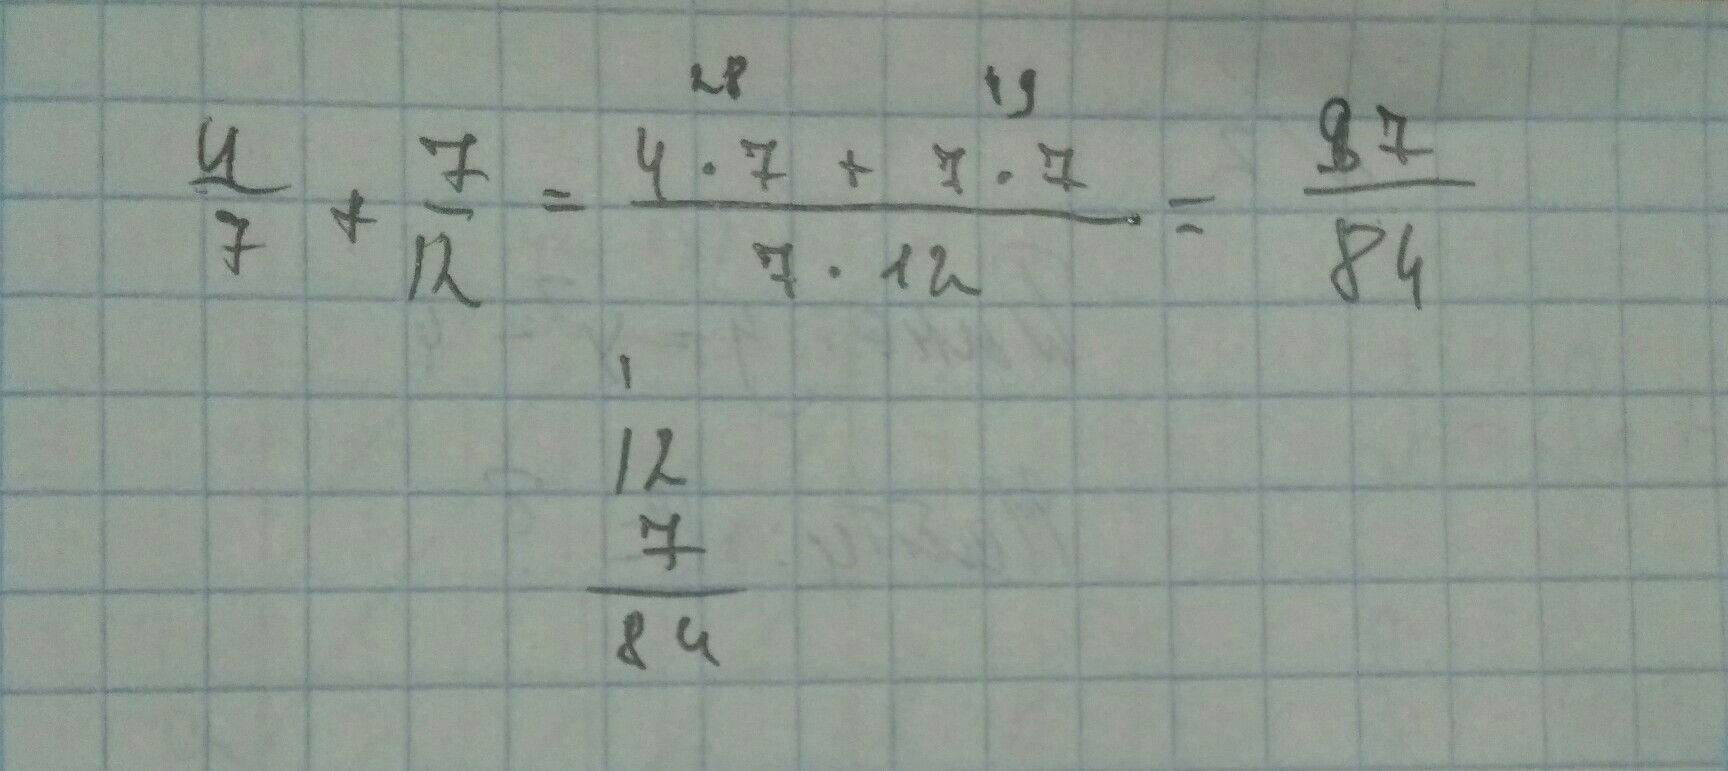 28 49
4/7 + 7/12 = (4 · 7 + 7 · 7)/(7 · 12) = 87/84
1
12
7
84